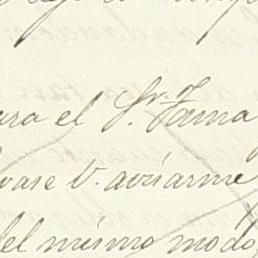 ara el Sr. Tama
vase V. avisarme
del mismo modo,